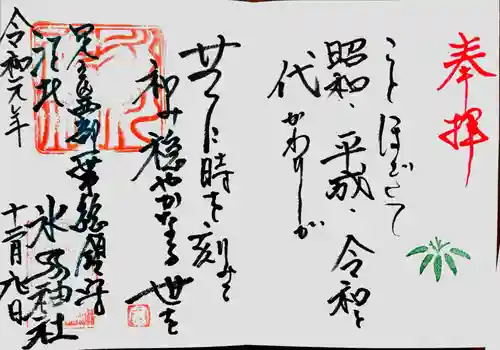 奉拝
ことほぎて
昭和、平成、令和と
代がわりしが
時を刻みて
和み穏やかなる世を
総鎮守
江北
氷川神社
令和元年
十二月九日